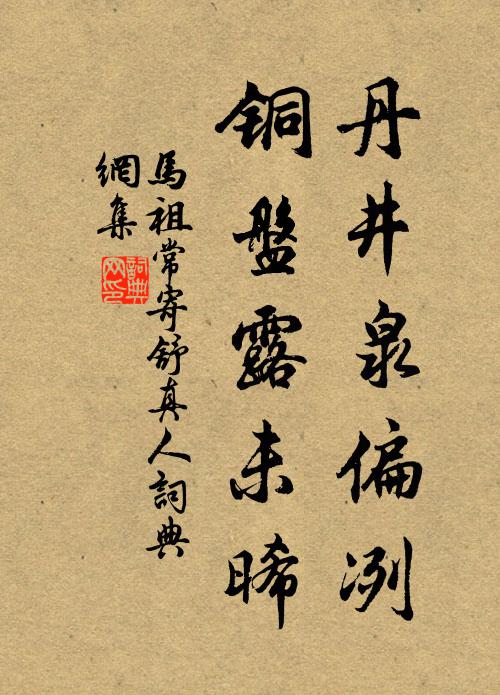 丹井泉偏冽
铜盤露未晞
馬祖常寄舒真人詞典
網集
詞典
网印